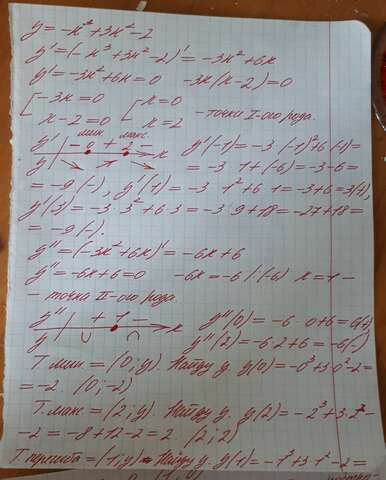 y = -x³+3x²-2
y' = (-x³+3x²-2)' = -3x²+6x
y' = -3x²+6x=0 -3x(x-2)=0
[-3x=0 [x=0
x-2=0 x=2 - точки I-ого рода.
мин. макс.
y' - 0 + 2 - x y'(-1)=-3·(-1)²+6·(-1)=
y = -3·1+(-6)=-3-6=
= -9(-), y'(1)=-3·1²+6·1=-3+6=3(+),
y'(3)=-3·3²+6·3=-3·9+18=-27+18=
= -9(-).
y''=(-3x²+6x)'=-6x+6
y''=-6x+6=0 -6x=-6 |:(-6) x=1 -
- точка II-ого рода.
y'' + 1 - x y''(0)=-6·0+6=6(+)
y ∪ ∩ y''(2)=-6·2+6=-6(-)
Т. мин. = (0; y). Найду y. y(0)=-0³+3·0²-2=
= -2. (0;-2)
Т. макс = (2; y). Найду y. y(2)=-2³+3·2²-
-2=-8+12-2=2. (2; 2)
Т. перегиба = (1; y) Найду y. y(1)=-1³+3·1²-2=